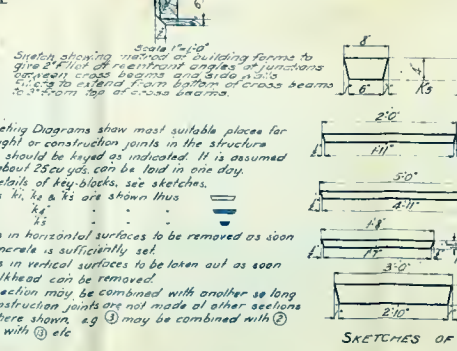 6"
Scale 1"=1'-0"
Sketch showing method of building forms to
give 2" fillet at reentrant angles at junctions
between cross beams and side walls
Fillets to extend from bottom of cross beams
to 3" from top of cross beams.
8"
6"
K5
eting Diagrams show most suitable places for
ight or construction joints in the structure
should be keyed as indicated. It is assumed
about 25 cu yds. can be laid in one day.
etails of key-blocks, see sketches.
s k1, k2 & k3 are shown thus
k4 " " "
k5 " " "
s in horizontal surfaces to be removed as soon
ncrete is sufficiently set.
s in vertical surfaces to be taken out as soon
lkhead can be removed.
ection may be combined with another so long
nstruction joints are not made at other sections
here shown, e.g. ③ may be combined with ②
with ⑬ etc
2'-0"
1'-11"
5'-0"
4'-11"
1'-8"
1'-7"
3'-0"
2'-10"
SKETCHES OF